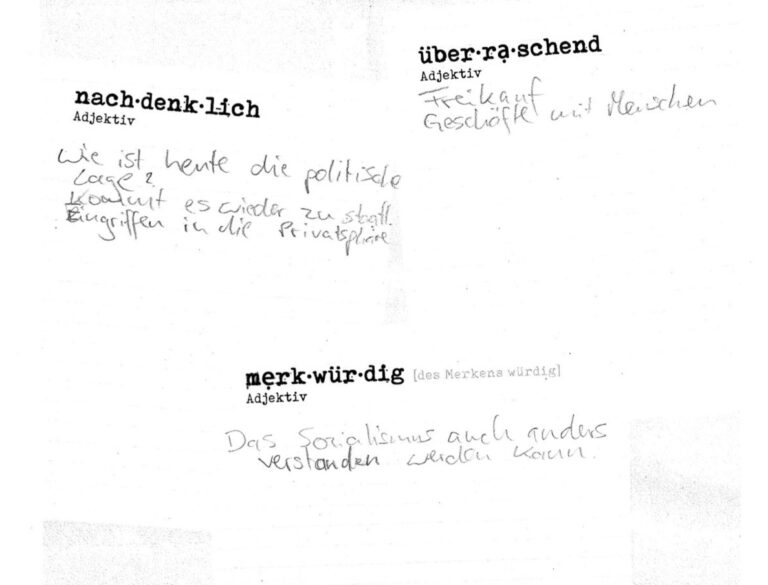 nach·denk·lich
Adjektiv
Wie ist heute die politische
Lage?
Kommt es wieder zu staatl.
Eingriffen in die Privatsphäre
über·rạ·schend
Adjektiv
Freikauf
Geschäfte mit Menschen
mẹrk·wür·dig [des Merkens würdig]
Adjektiv
Das Sozialismus auch anders
verstanden werden kann.